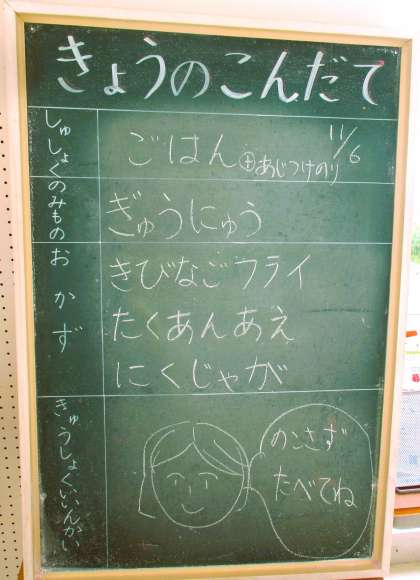 きょうのこんだて
11/6
しゅしょく ごはん ㊉あじつけのり
のみもの ぎゅうにゅう
おかず きびなごフライ
たくあんあえ
にくじゃが
きゅうしょくいいんかい
のこさず
たべてね